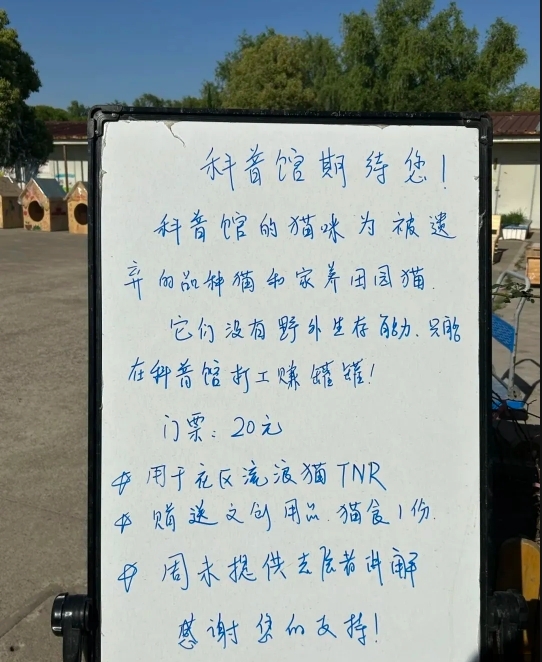 科普馆期待您!
科普馆的猫咪为被遗
弃的品种猫和家养田园猫.
它们没有野外生存能力.只能
在科普馆打工赚罐罐!
门票:20元
☆用于社区流浪猫TNR
☆赠送文创用品.猫食1份.
☆周末提供志愿者讲解
感谢您的支持!